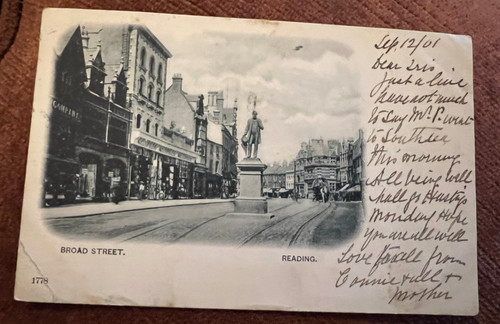 COMPANY
BROAD STREET.
READING.
1778
Sep. 12/01
Dear Iris
Just a line
have not much
to say Mr. P. went
to Southsea
this morning
All being well
shall go
Monday Hope
you are all well
Love to all from
Connie & all &
Mother